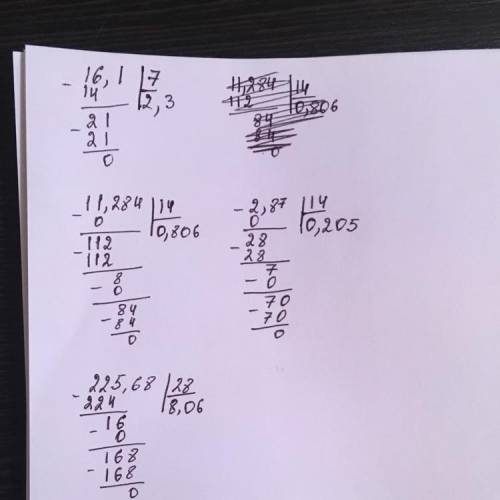 - 16,1 | 7
14 | 2,3
- 21
21
0
11,284 | 14
112 | 0,806
84
84
0
- 11,284 | 14
0 | 0,806
- 112
112
- 8
0
- 84
84
0
- 2,87 | 14
0 | 0,205
- 28
28
- 7
0
- 70
70
0
- 225,68 | 28
224 | 8,06
- 16
0
- 168
168
0